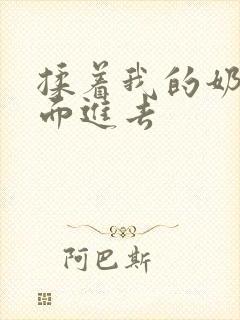 揉着我的奶
而進去
阿巴斯